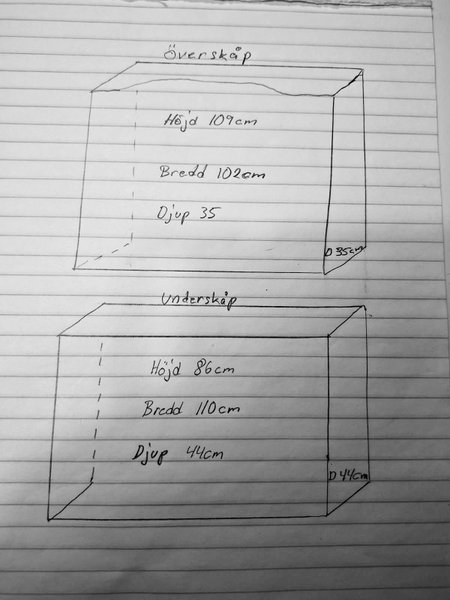 Överskåp
Höjd 109cm
Bredd 102cm
Djup 35
D 35cm
Underskåp
Höjd 86cm
Bredd 110cm
Djup 44cm
D 44cm